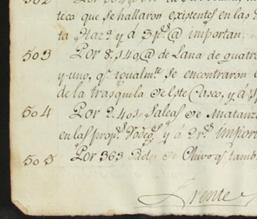 tica que se hallaron existentes en las
ta Haz.ª y á 3 p.s @ importan
503 Por 8,140@ de Lana de quatro
y uno, q.e igualm.te se encontraron
de la trasquila de este Casco, y á
504 Por 2,401 Saleas de Matanza
en las prop.s Todeg.s y á 2 r.s import
505 Por 363 Pieles de Chivo q.e tamb
Frente